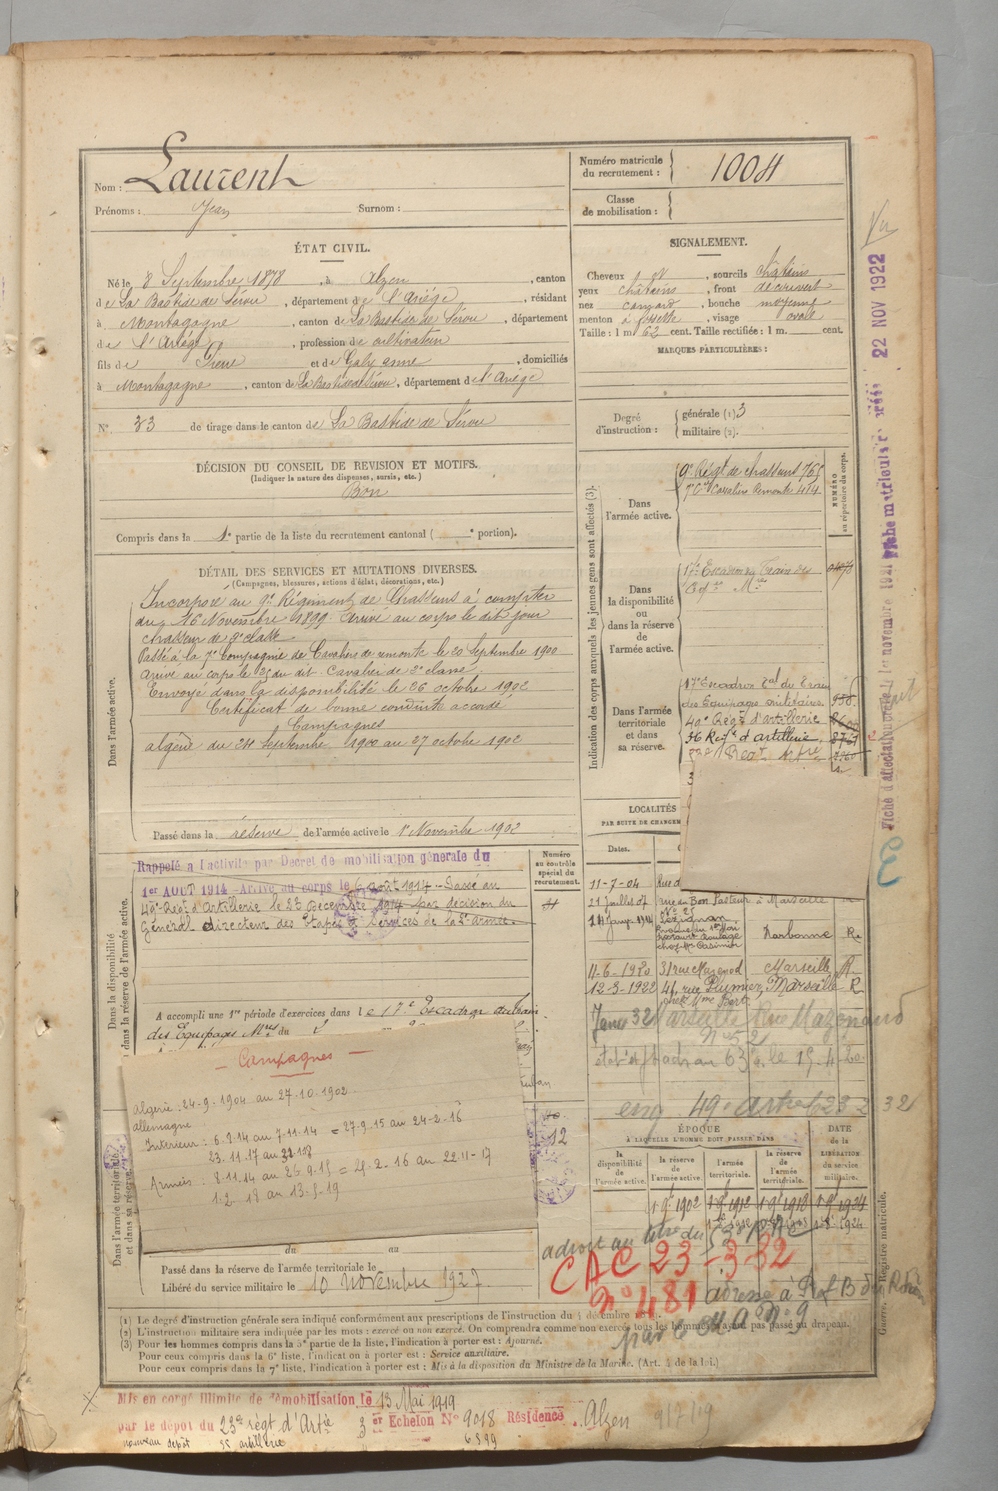 Nom : Laurent
Prénoms : Jean Surnom :
Numéro matricule du recrutement : 1004
Classe de mobilisation :
ÉTAT CIVIL.
Né le 8 Septembre 1878, à Alzen, canton
de La Bastide de Sérou, département de l'Ariége, résidant
à Montagagne, canton de La Bastide de Sérou, département
de l'Ariége, profession de cultivateur
fils de Pierre et de Galy anne, domiciliés
à Montagagne, canton de La Bastide de Sérou, département de l'Ariége
N° 33 de tirage dans le canton de La Bastide de Sérou
SIGNALEMENT.
Cheveux , sourcils châtains
yeux châtains, front découvert
nez camard, bouche moyenne
menton à fossette, visage ovale
Taille : 1 m 62 cent. Taille rectifiée : 1 m. cent.
MARQUES PARTICULIÈRES :
Degré d'instruction : générale (1) 3
militaire (2).
DÉCISION DU CONSEIL DE REVISION ET MOTIFS.
(Indiquer la nature des dispenses, sursis, etc.)
Bon
Compris dans la 1e partie de la liste du recrutement cantonal ( e portion).
DÉTAIL DES SERVICES ET MUTATIONS DIVERSES.
(Campagnes, blessures, actions d'éclat, décorations, etc.)
Dans l'armée active.
Incorporé au 9e Régiment de Chasseurs à compter
du 16 Novembre 1899 Arrivé au corps le dit jour
chasseur de 2e classe
Passé à la 7e Compagnie de Cavaliers de remonte le 20 Septembre 1900
arrivé au corps le 25 du dit Cavalier de 2e classe
Envoyé dans la disponibilité le 26 octobre 1902
Certificat de bonne conduite accordé
Campagnes
algérie du 24 Septembre 1900 au 27 octobre 1902
Passé dans la réserve de l'armée active le 1er Novembre 1902
Indication des corps auxquels les jeunes gens sont affectés (3).
NUMÉRO au répertoire du corps.
Dans l'armée active.
9e Régt de chasseurs 765
7e Cie Cavaliers Remonte 414
Dans la disponibilité ou dans la réserve de l'armée active.
17e Escadron Train des
Dans l'armée territoriale et dans sa réserve.
17e Escadron Tal du Train
des Equipages militaires
40e Régt d'artillerie
56 Régt d'artillerie
LOCALITÉS
PAR SUITE DE CHANGEM
Dates.
11-7-04 Rue d
21 Juillet 07 rue du Bon Pasteur à Marseille
14 Janv. 1914 Lézignan
chez Mr Casimir Narbonne R.
11-6-1920 31 rue Mazenod Marseille R
12-3-1922 41, rue Plumier Marseille R
chez Mme Bert
Janv 32 Marseille Rue Mazenod
n° 52
Dans la disponibilité et dans la réserve de l'armée active.
Numéro au contrôle spécial du recrutement.
Rappelé à l'activité par Décret de mobilisation générale du
1er AOUT 1914 - Arrivé au corps le 6 août 1914 - Passé au
49e Régt d'Artillerie le 23 Decembre 1914 par décision du
Général directeur des Etapes & Services de la 2e armée
A accompli une 1re période d'exercices dans le 17e Escadron du Train
des Equipages Mres du
— Campagnes —
Algérie : 24-9-1904 au 27.10.1902
allemagne
Intérieur : 6.8.14 au 7.11.14 = 27-9.15 au 24-2-16
23.11.17 au 31 1 18
Armées : 8.11.14 au 26.9.15 = 25-2-16 au 22-11-17
1-2-18 au 13-5-19
12
du au
Dans l'armée territoriale et dans sa réserve.
Passé dans la réserve de l'armée territoriale le
Libéré du service militaire le 10 novembre 1927.
eng. 49e Artie 23-2-32
ÉPOQUE
À LAQUELLE L'HOMME DOIT PASSER DANS
DATE de la LIBÉRATION du service militaire.
la disponibilité de l'armée active.
la réserve de l'armée active.
l'armée territoriale.
la réserve de l'armée territoriale.
1 9 1902 1 9 1912 1 9 1918 1 9 1924
a droit au titre du
CAC 23-3-32
n° 481
(1) Le degré d'instruction générale sera indiqué conformément aux prescriptions de l'instruction du 4 décembre
(2) L'instruction militaire sera indiquée par les mots : exercé ou non exercé. On comprendra comme non exercés tous les hommes n'ayant pas passé au drapeau.
(3) Pour les hommes compris dans la 5e partie de la liste, l'indication à porter est : Ajourné.
Pour ceux compris dans la 6e liste, l'indication à porter est : Service auxiliaire.
Pour ceux compris dans la 7e liste, l'indication à porter est : Mis à la disposition du Ministre de la Marine. (Art. 4 de la loi.)
Mis en congé illimité de démobilisation le 13 Mai 1919
par le dépôt du 23e régt d'Artie 3er Echelon N° 9018 Résidence Alzen
nouveau dépôt artillerie 6899
22 NOV 1922
Guerre. Registre matricule.